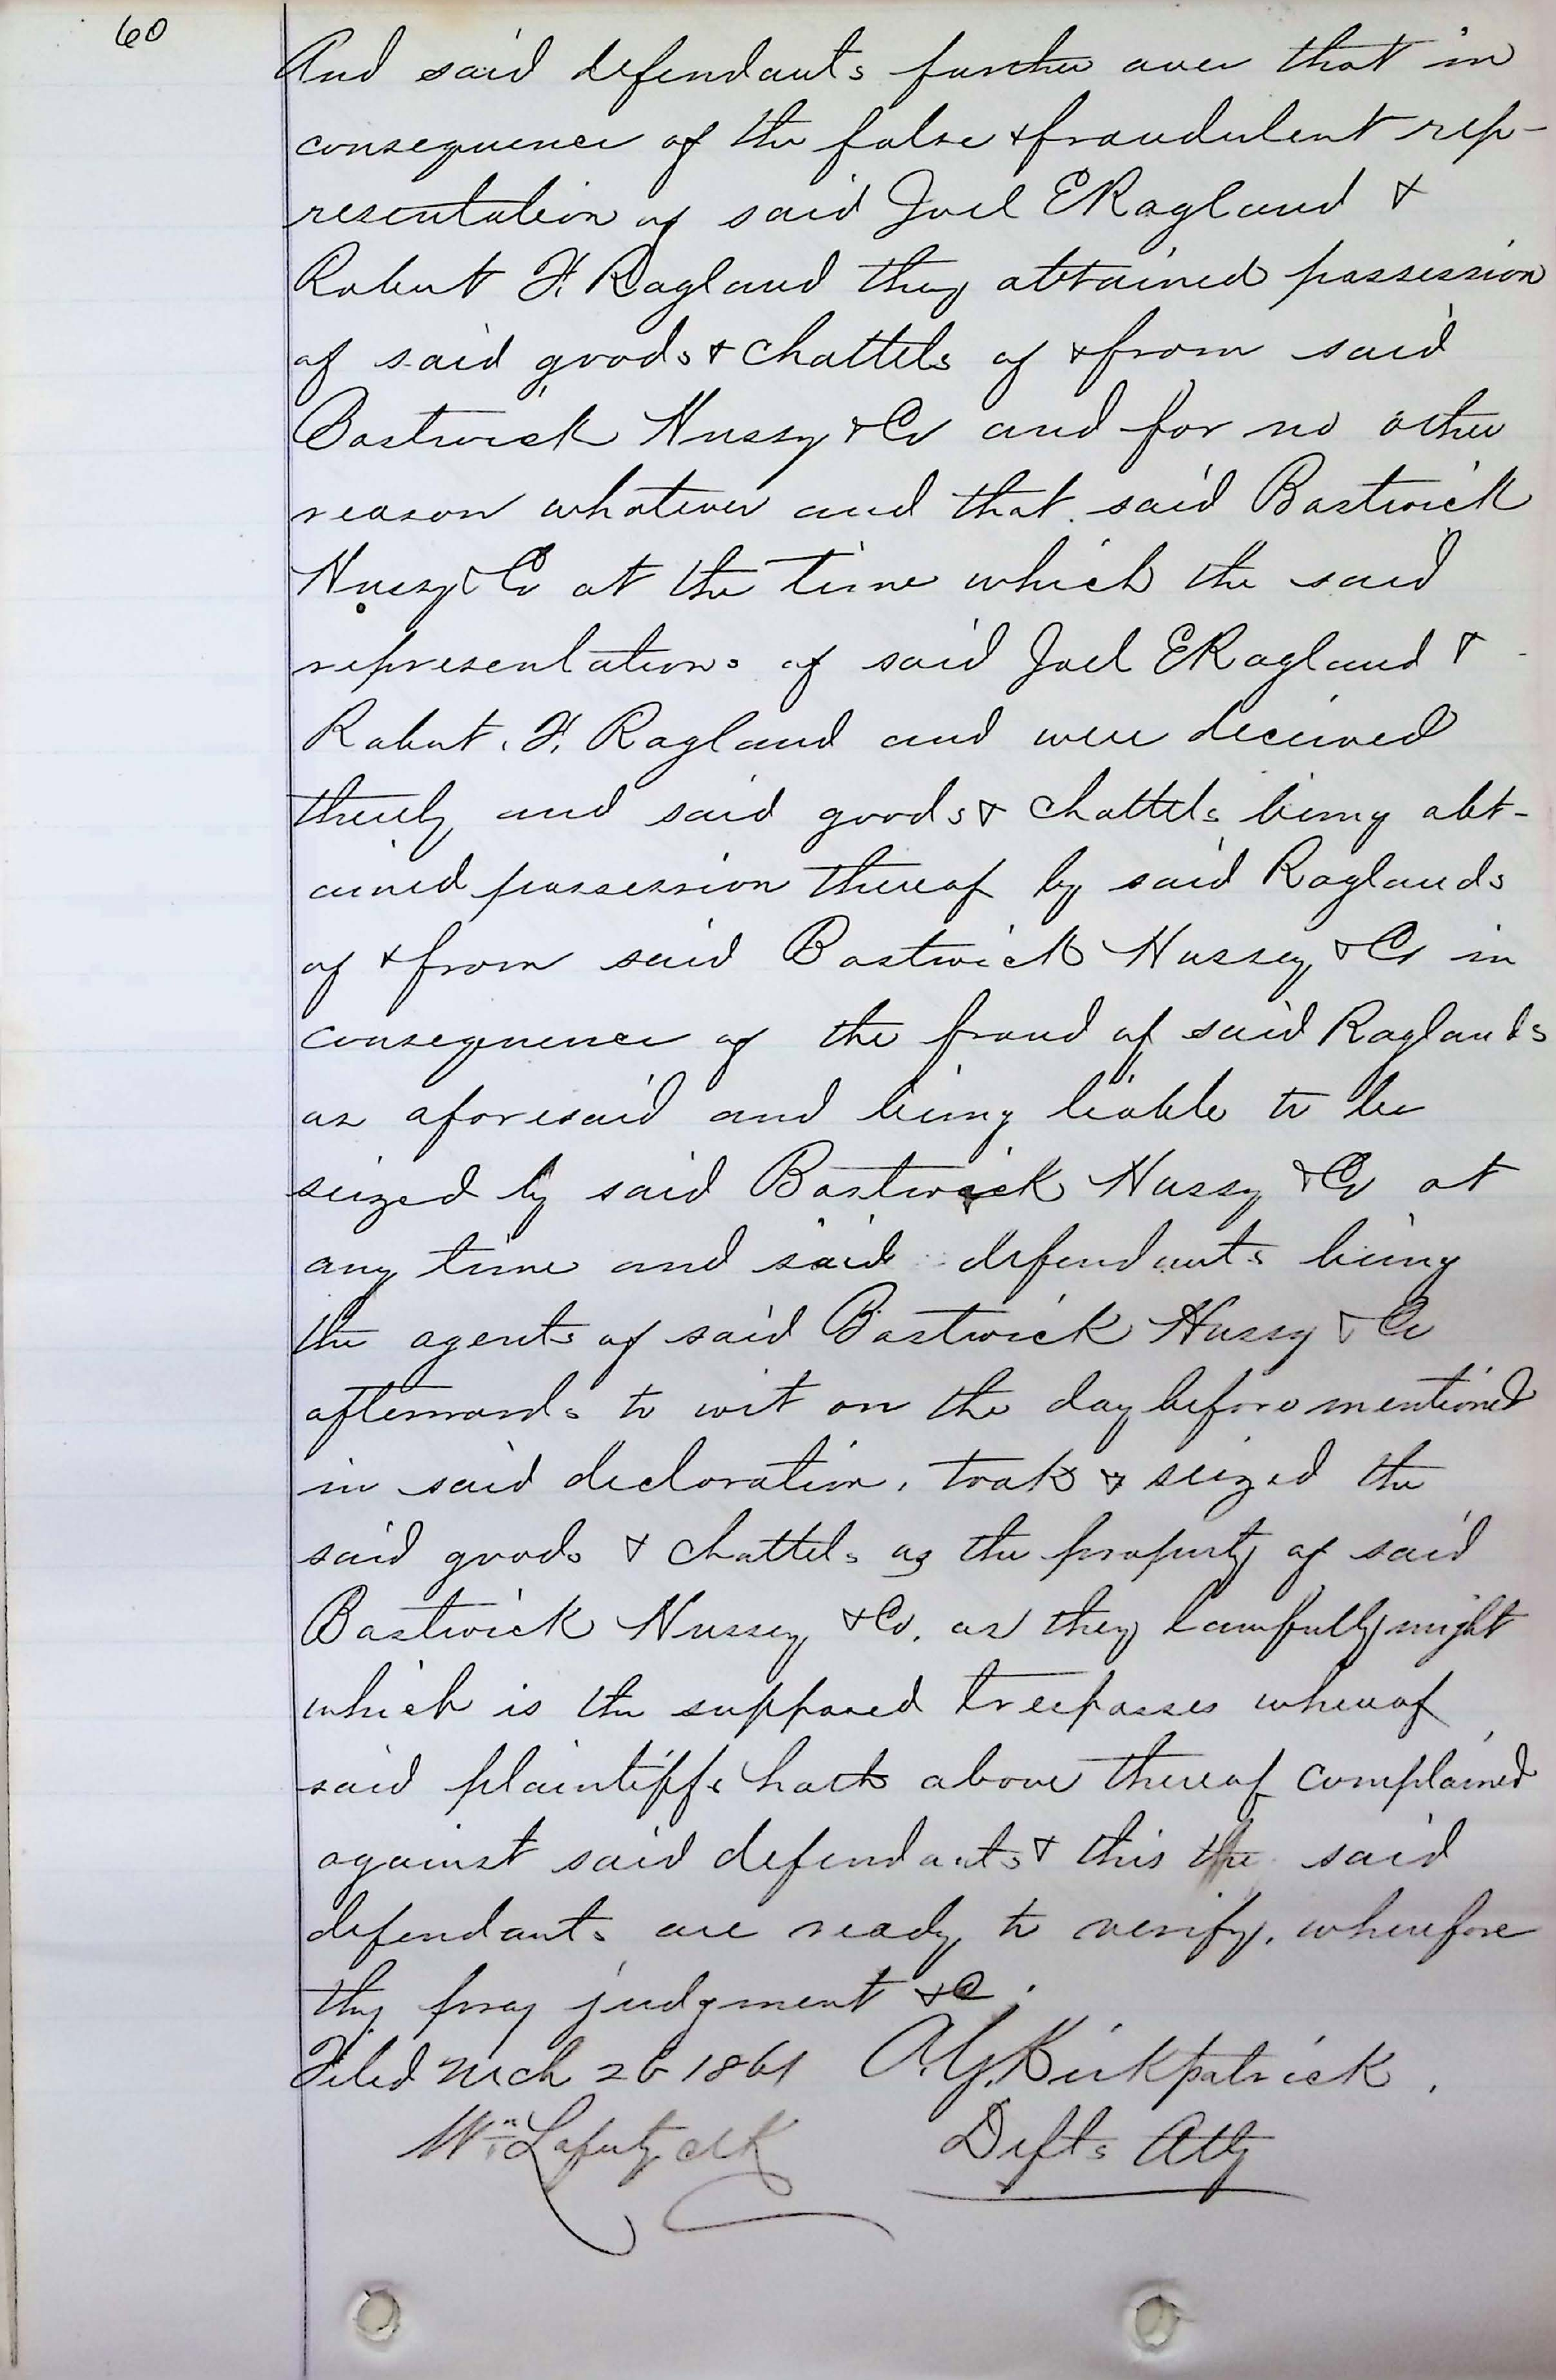 60
And said defendants further aver that in
consequence of the false & fraudulent rep-
resentation of said Joel E Ragland &
Robert F. Ragland they obtained possession
of said goods & chattels of & from said
Bostwick Hussy & Co and for no other
reason whatever and that said Bostwick
Hussy & Co at the time which the said
representations of said Joel E Ragland &
Robert. F. Ragland and were deceived
thereby and said goods & chattels being obt-
ained possession thereof by said Raglands
of & from said Bostwick Hussey & Co in
consequence of the fraud of said Raglands
as aforesaid and being liable to be
seized by said Bostwick Hussy & Co at
any time and said defendants being
the agents of said Bostwick Hussy & Co
afterwards to wit on the day before mentioned
in said decloration, took & seized the
said goods & chattels as the property of said
Bostwick Hussey & Co. as they lawfully might
which is the supposed trespasses whereof
said plaintiffs hath above thereof complained
against said defendants & this the said
defendants are ready to verify, wherefore
they pray judgment &c.
Filed Mch 26 1861 A.G. Kirkpatrick.
Wm clk Defts Atty